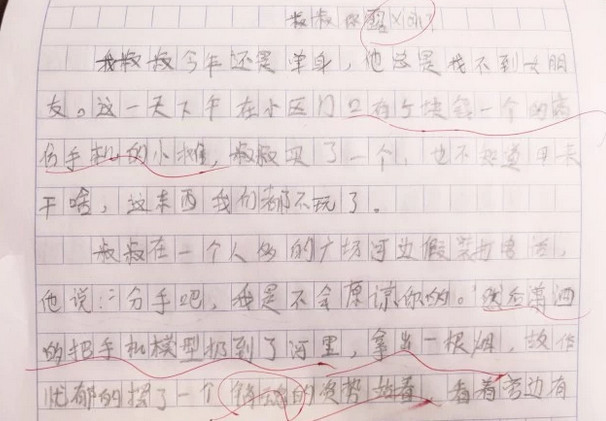 叔叔你露×了
我叔叔今年还是单身，他总是找不到女朋
友。这一天下午在小区门口有个块钱一个的高
仿手机的小摊，叔叔买了一个，也不知道用来
干啥，这东西我们都不玩了。
叔叔在一个人多的广场河边假装打电话，
他说：“分手吧，我是不会原谅你的。”然后潇洒
的把手机模型扔到了河里，拿出一根烟，故作
忧郁的摆了一个 的姿势站着，看着旁边有